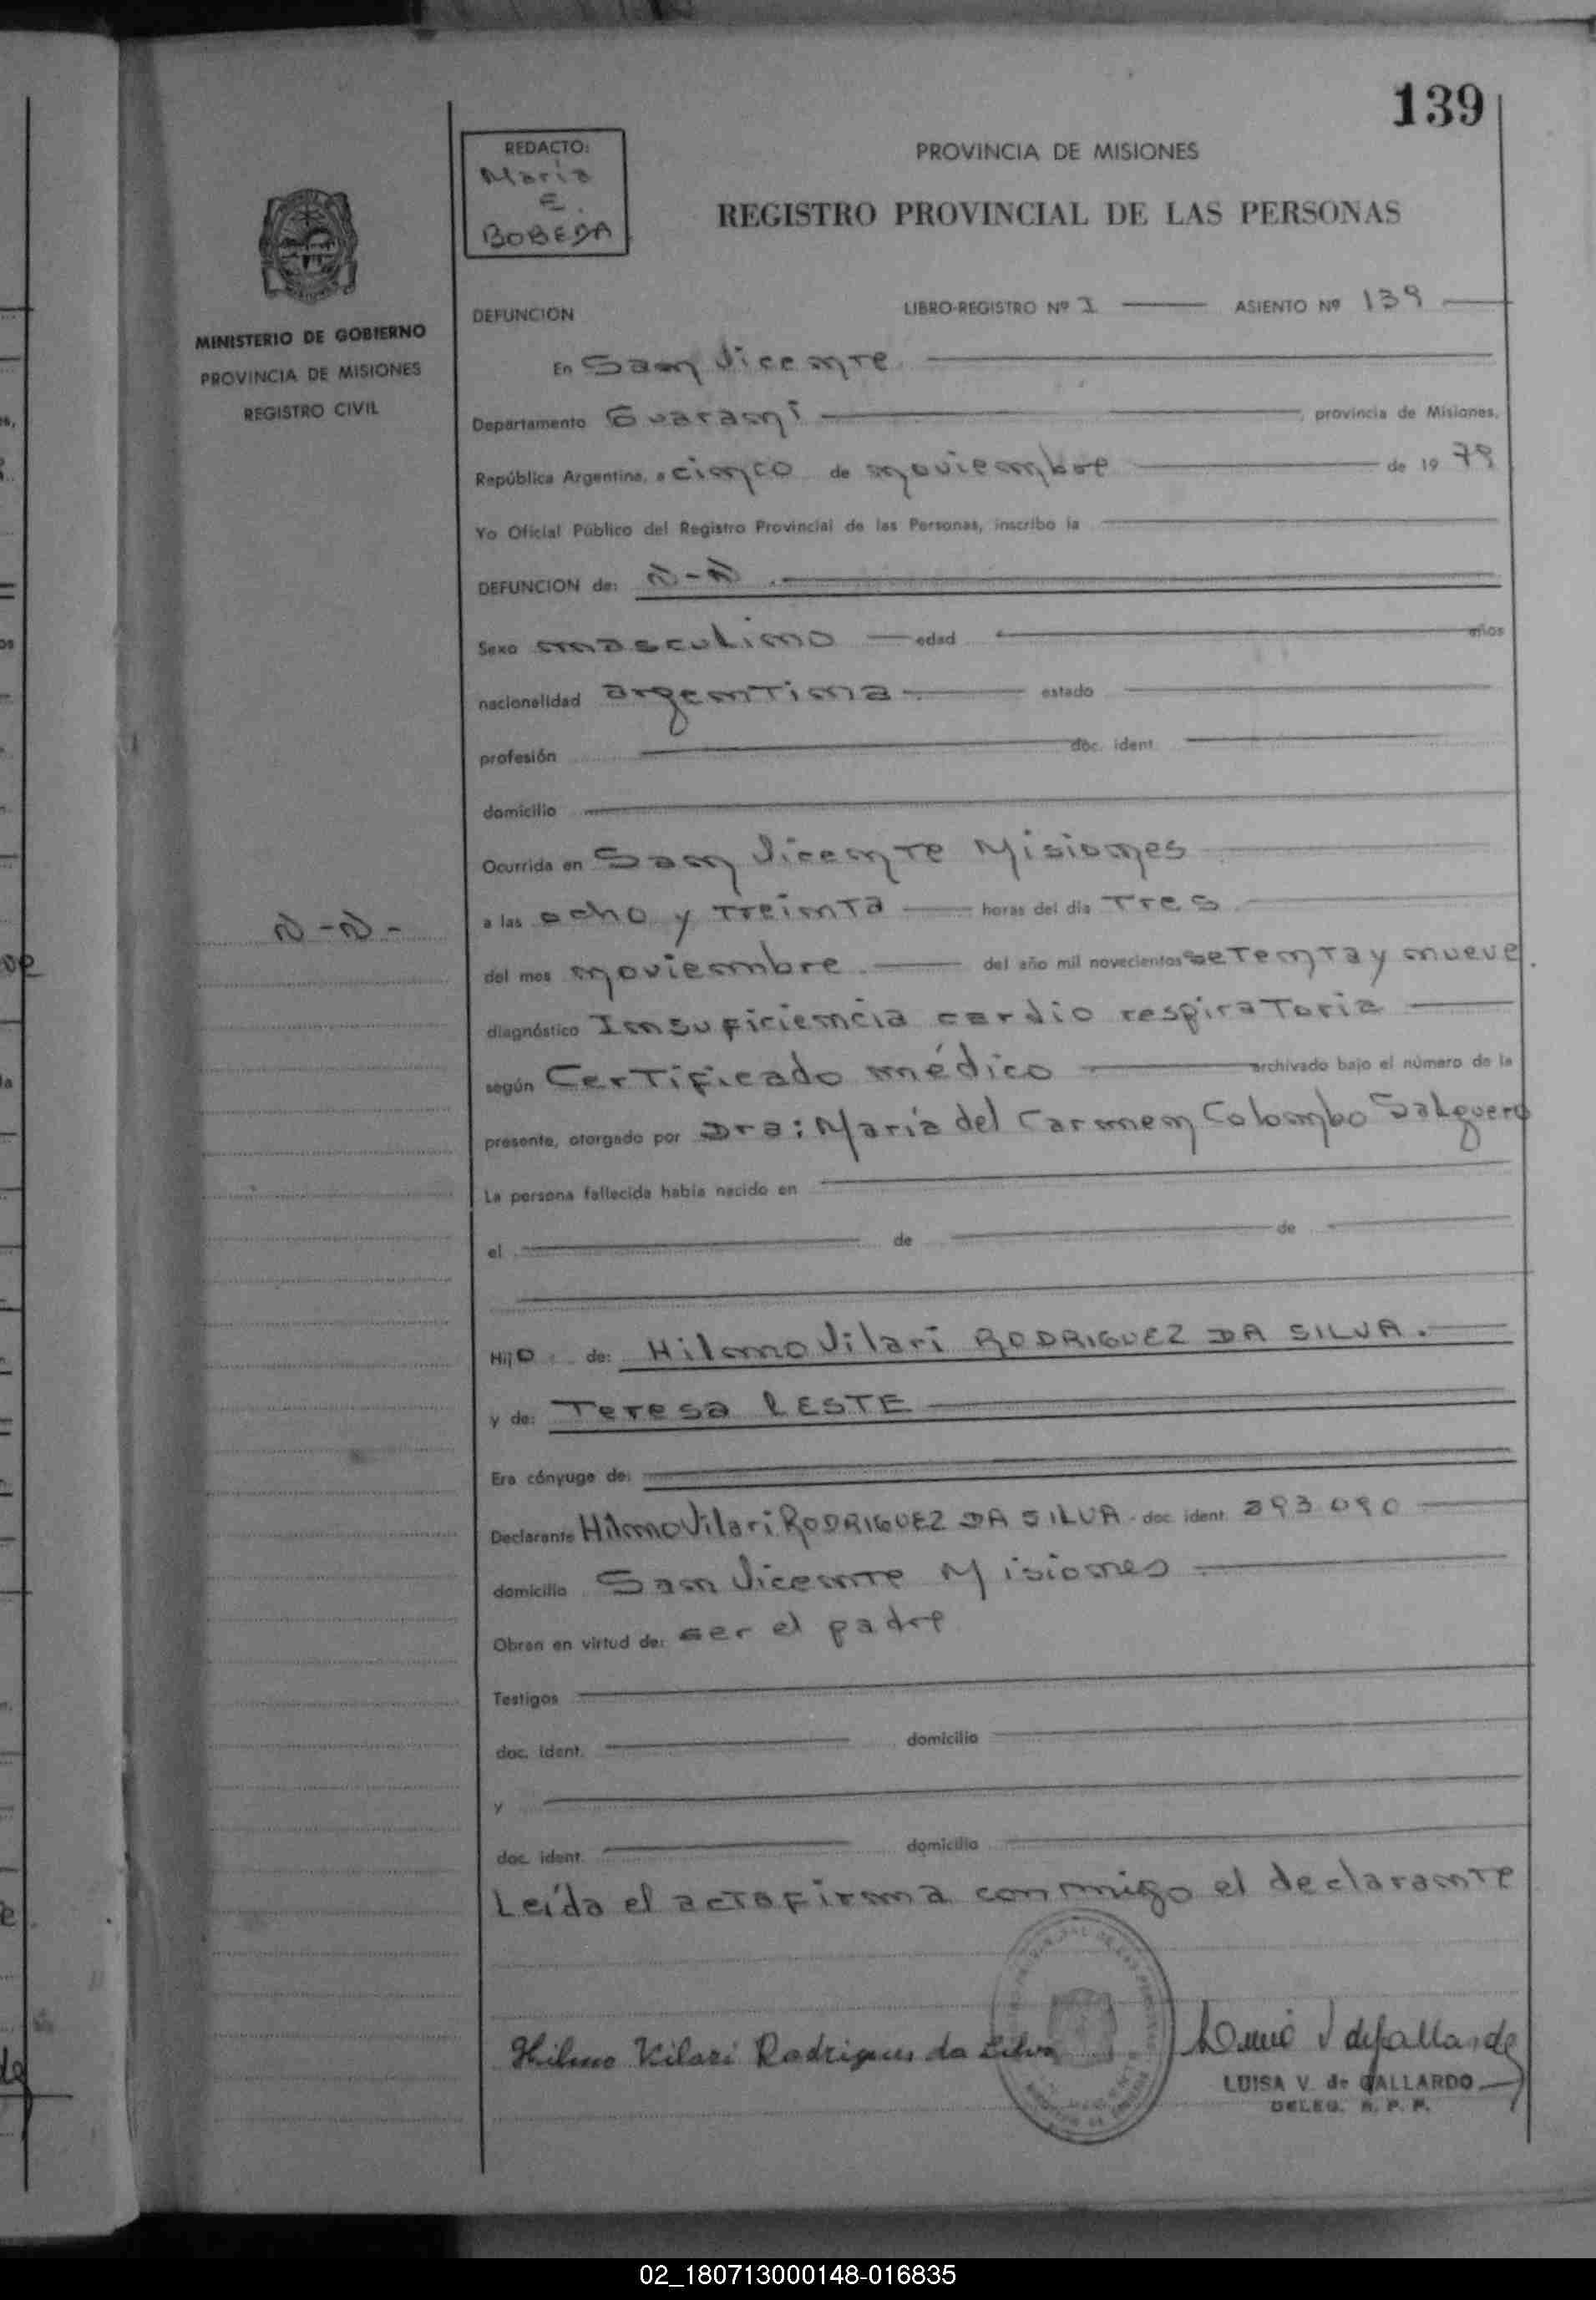 139
REDACTO:
Maria
E.
BOBEDA
PROVINCIA DE MISIONES
REGISTRO PROVINCIAL DE LAS PERSONAS
MINISTERIO DE GOBIERNO
PROVINCIA DE MISIONES
REGISTRO CIVIL
DEFUNCION LIBRO-REGISTRO Nº I ASIENTO Nº 139
En San Vicente
Departamento Guaraní, provincia de Misiones,
República Argentina, a cinco de noviembre de 19 79
Yo Oficial Público del Registro Provincial de las Personas, inscribo la
DEFUNCION de: N-N.
Sexo masculino edad años
nacionalidad argentina estado
profesión doc. ident.
domicilio
Ocurrida en San Vicente Misiones
N-N-
a las ocho y treinta horas del día Tres
del mes noviembre del año mil novecientos setenta y nueve.
diagnóstico Insuficiencia cardio respiratoria
según Certificado médico archivado bajo el número de la
presente, otorgado por Dra: María del Carmen Colombo Salguero
La persona fallecida había nacido en
el de de
Hijo de: Hilmo Vilari RODRIGUEZ DA SILVA.
y de: Teresa LESTE
Era cónyuge de:
Declarante Hilmo Vilari RODRIGUEZ DA SILVA. doc. ident. 293.090
domicilio San Vicente Misiones
Obran en virtud de: ser el padre
Testigos
doc. ident. domicilio
y
doc. ident. domicilio
Leída el acta firma conmigo el declarante
Hilmo Vilari Rodrigues da Silva
LUISA V. de GALLARDO
DELEG. R. P. P.
02_180713000148-016835